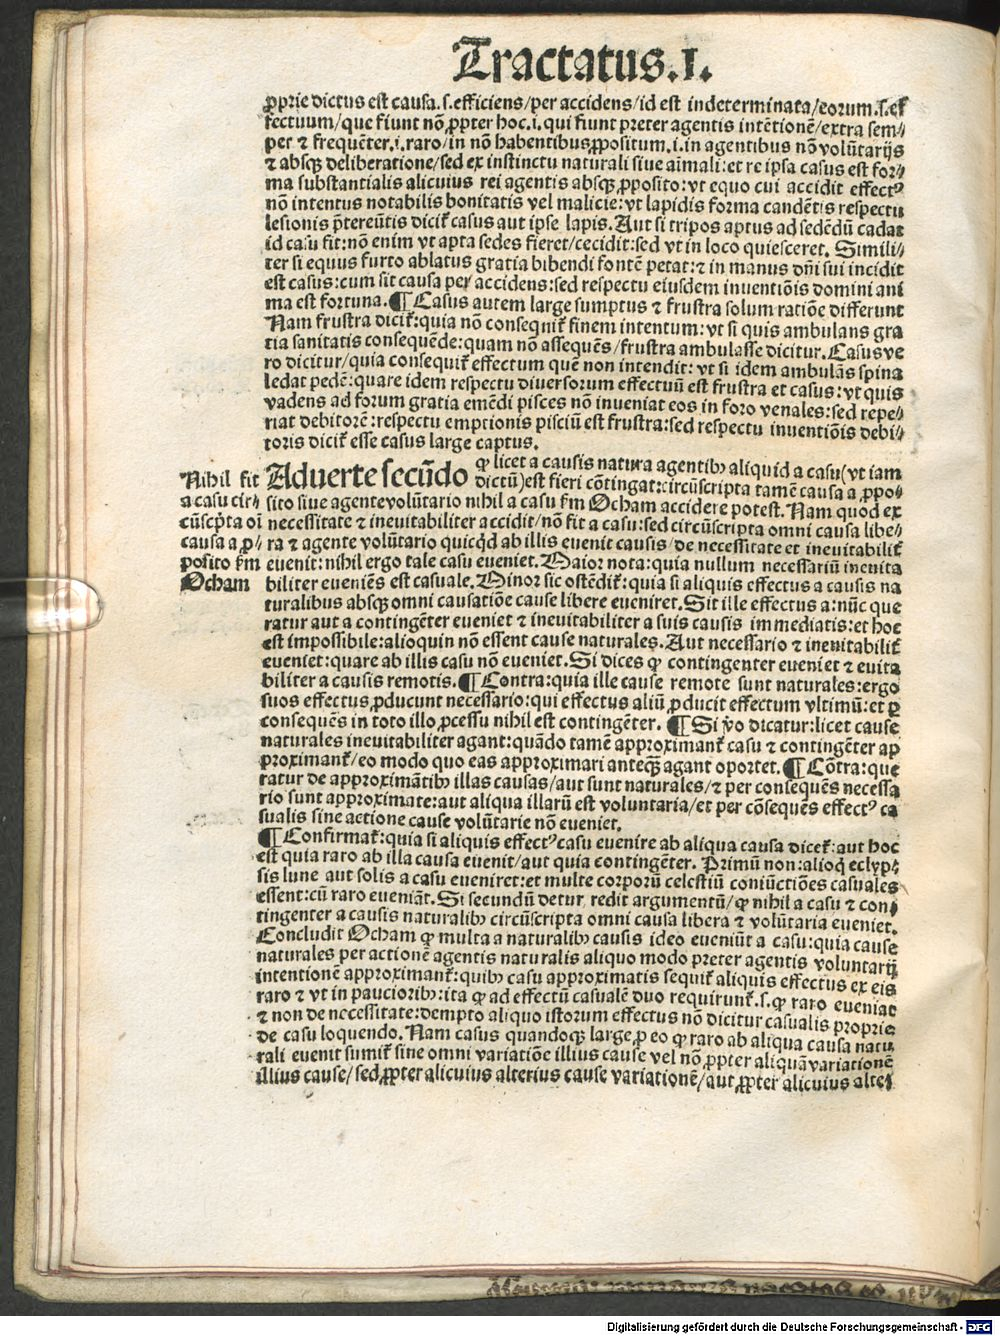 Tractatus.I.
ꝓprie dictus est causa.s.efficiens/per accidens/id est indeterminata/eorum.s.ef
fectuum/que fiunt nō ꝓpter hoc.i.qui fiunt preter agentis intētionē/extra sem⸗
per ⁊ frequēter.i.raro/in nō habentibus ꝓpositum.i.in agentibus nō volūtarijs
⁊ absqꝫ deliberatione/sed ex instinctu naturali siue aīmali:et re ipsa casus est for⸗
ma substantialis alicuius rei agentis absqꝫ ꝓposito:vt equo cui accidit effectꝰ
nō intentus notabilis bonitatis vel malicie:vt lapidis forma candētis respectu
lesionis p̄tereūtis dicit̄ casus aut ipse lapis. Aut si tripos aptus ad sedēdū cadat
id casu fit:nō enim vt apta sedes fieret/cecidit:sed vt in loco quiesceret. Simili⸗
ter si equus furto ablatus gratia bibendi fontē petat:⁊ in manus dn̄i sui incidit
est casus:cum sit causa per accidens:sed respectu eiusdem inuentiōis domini ani
ma est fortuna.¶Casus autem large sumptus ⁊ frustra solum ratiōe differunt
Nam frustra dicit̄:quia nō consequit̄ finem intentum:vt si quis ambulans gra
tia sanitatis consequēde:quam nō assequēs/frustra ambulasse dicitur.Casus ve
ro dicitur/quia consequit̄ effectum quē non intendit:vt si idem ambulās spina
ledat pedē:quare idem respectu diuersorum effectuū est frustra et casus:vt quis
vadens ad forum gratia emēdi pisces nō inueniat eos in foro venales:sed repe⸗
riat debitorē:respectu emptionis pisciū est frustra:sed respectu inuentiōis debi⸗
toris dicit̄ esse casus large captus.
Nihil fit
a casu cir⸗
cūscp̄ta oī
causa a ꝓ⸗
posito fm
Ocham
Aduerte secūdo ꝙ licet a causis natura agentibꝫ aliquid a casu(vt iam
dictū)est fieri cōtingat:circūscripta tamē causa a ꝓpo⸗
sito siue agente volūtario nihil a casu fm Ocham accidere potest. Nam quod ex
necessitate ⁊ ineuitabiliter accidit/nō fit a casu:sed circūscripta omni causa libe⸗
ra ⁊ agente volūtario quicqd ab illis euenit causis/de necessitate et ineuitabilit̄
euenit:nihil ergo tale casu eueniet. Maior nota:quia nullum necessariū ineuita
biliter eueniēs est casuale. Minor sic ostēdit̄:quia si aliquis effectus a causis na
turalibus absqꝫ omni causatiōe cause libere eueniret. Sit ille effectus a:nūc que
ratur aut a contingēter eueniet ⁊ ineuitabiliter a suis causis immediatis:et hoc
est impossibile:alioquin nō essent cause naturales. Aut necessario ⁊ ineuitabilit̄
eueniet:quare ab illis casu nō eueniet. Si dices ꝙ contingenter eueniet ⁊ euita
biliter a causis remotis.¶Contra:quia ille cause remote sunt naturales:ergo
suos effectus ꝓducunt necessario:qui effectus aliū ꝓducit effectum vltimū:et ꝑ
consequēs in toto illo ꝓcessu nihil est contingēter. ¶Si v̄o dicatur:licet cause
naturales ineuitabiliter agant:quādo tamē approximant̄ casu ⁊ contingēter ap
proximant̄/eo modo quo eas approximari anteqꝫ agant oportet.¶Cōtra:que
ratur de approximātibꝫ illas causas/aut sunt naturales/⁊ per consequēs necessa
rio sunt approximate:aut aliqua illarū est voluntaria/et per cōsequēs effectꝰ ca
sualis sine actione cause volūtarie nō eueniet.
¶Confirmat̄:quia si aliquis effectꝰ casu euenire ab aliqua causa dicet̄:aut hoc
est quia raro ab illa causa euenit/aut quia contingēter. Primū non:alioq̄ eclyp⸗
sis lune aut solis a casu eueniret:et multe corporū celestiū coniūctiōes casuales
essent:cū raro eueniāt. Si secundū detur, redit argumentū/ꝙ nihil a casu ⁊ con⸗
tingenter a causis naturalibꝫ circūscripta omni causa libera ⁊ volūtaria eueniet.
Concludit Ocham ꝙ multa a naturalibꝫ causis ideo eueniūt a casu:quia cause
naturales per actionē agentis naturalis aliquo modo preter agentis voluntarij
intentionē approximant̄:quibꝫ casu approximatis sequit̄ aliquis effectus ex eis
raro ⁊ vt in paucioribꝫ:ita ꝙ ad effectū casualē duo requirunt̄.s.ꝙ raro eueniat
⁊ non de necessitate:dempto aliquo istorum effectus nō dicitur casualis proprie
de casu loquendo. Nam casus quandoqꝫ large ꝓ eo ꝙ raro ab aliqua causa natu
rali euenit sumit̄ sine omni variatiōe illius cause vel nō ꝓpter aliquā variationē
illius cause/sed ꝓpter alicuius alterius cause variationē/aut ꝓpter alicuius alte⸗
Digitalisierung gefördert durch die Deutsche Forschungsgemeinschaft - DFG